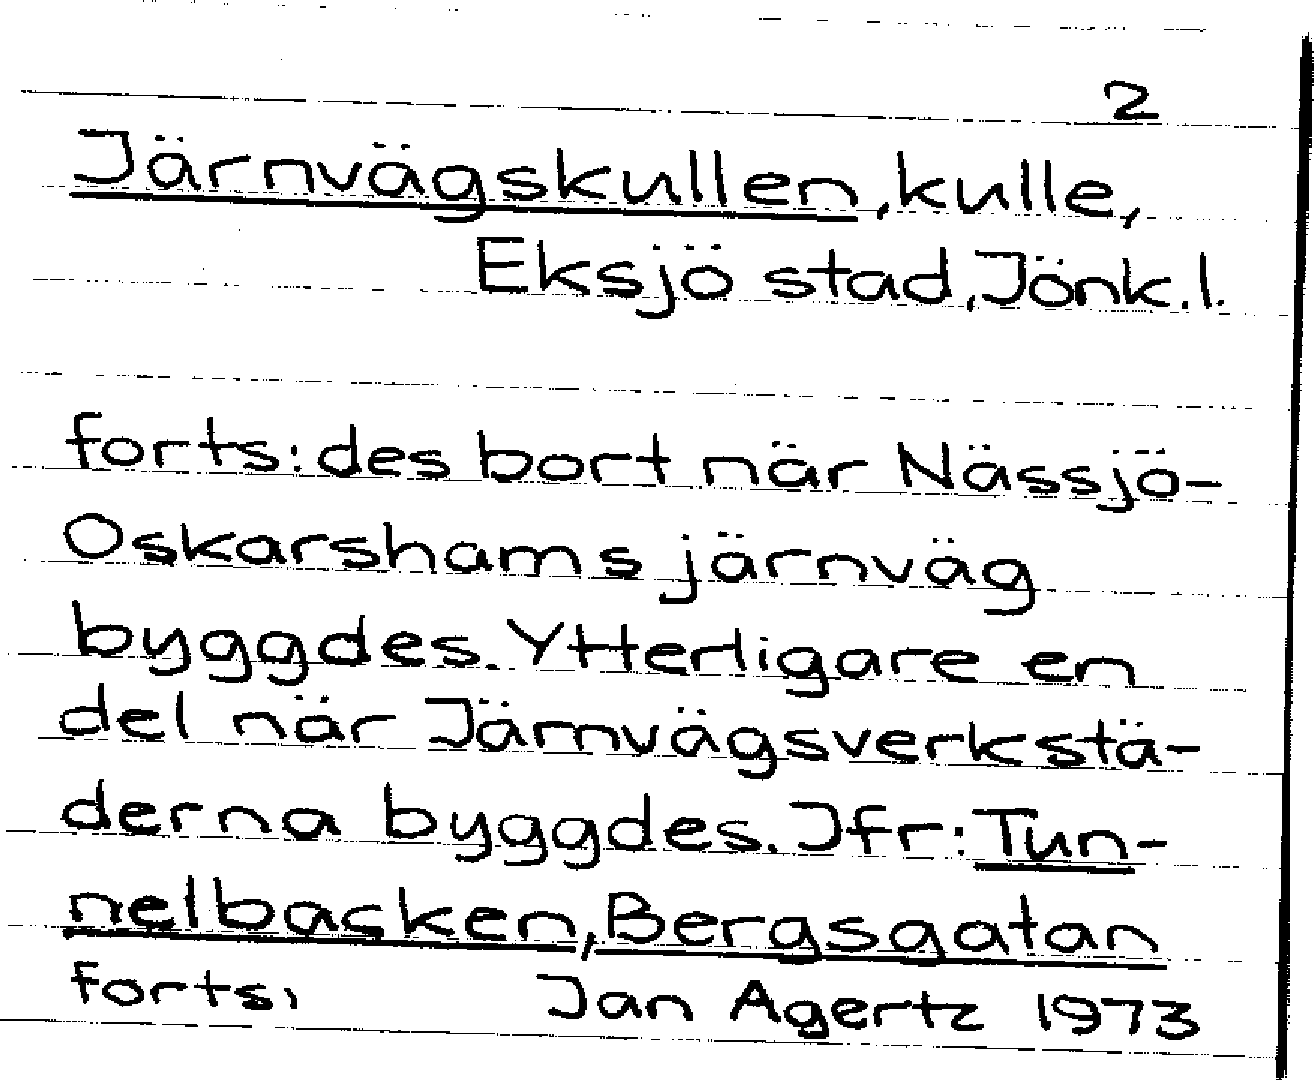 2
Järnvägskullen, kulle,
Eksjö stad, Jönk.l.
forts: des bort när Nässjö-
Oskarshams järnväg
byggdes. Ytterligare en
del när Järnvägsverkstä-
derna byggdes. Jfr: Tun-
nelbacken, Bergsgatan
forts, Jan Agertz 1973